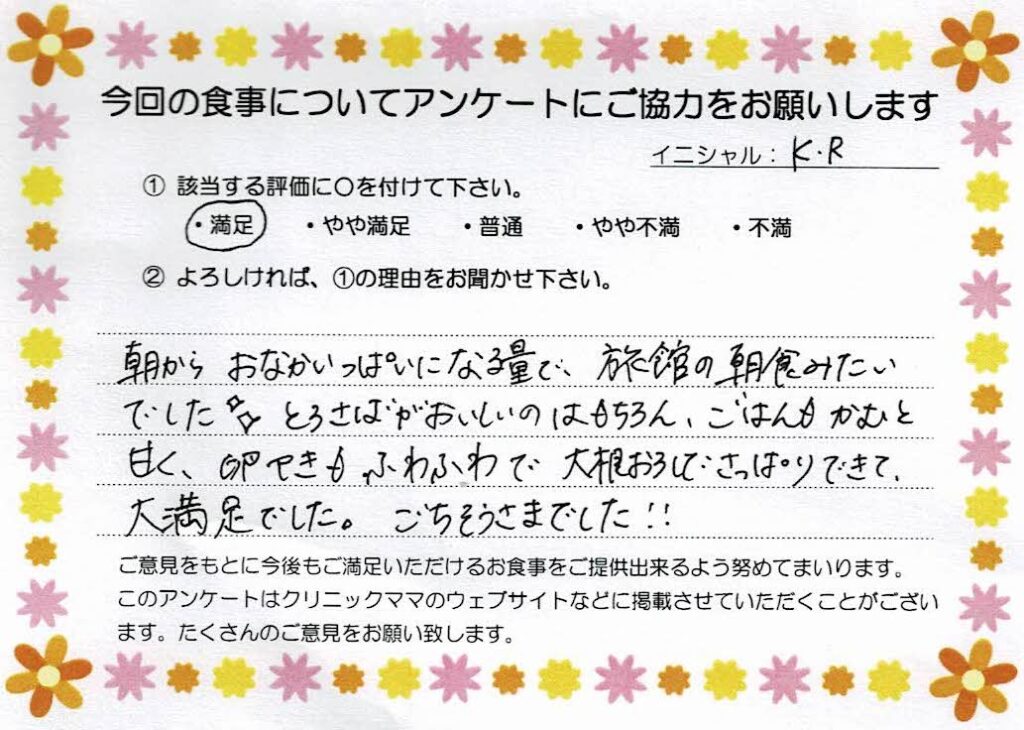 今回の食事についてアンケートにご協力をお願いします
イニシャル：K.R
① 該当する評価に〇を付けて下さい。
・満足 ・やや満足 ・普通 ・やや不満 ・不満
② よろしければ、①の理由をお聞かせ下さい。
朝から おなかいっぱいになる量で、旅館の朝食みたい
でした とろさばがおいしいのはもちろん、ごはんも かむと
甘く、卵やきも ふわふわで 大根おろしでさっぱりできて、
大満足でした。 ごちそうさまでした!!
ご意見をもとに今後もご満足いただけるお食事をご提供出来るよう努めてまいります。
このアンケートはクリニックママのウェブサイトなどに掲載させていただくことがござい
ます。たくさんのご意見をお願い致します。